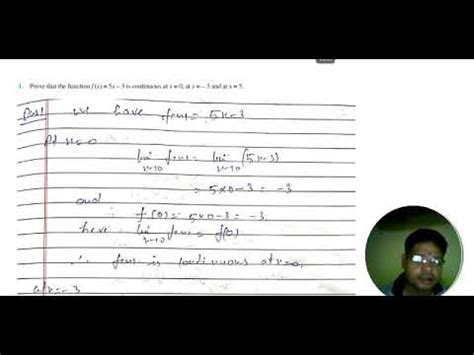 1. Prove that the function f (x) = 5x – 3 is continuous at x = 0, at x = – 3 and at x = 5.
we have f(x) = 5x-3
At x=0
lim x→0 f(x) = lim x→0 (5x-3)
= 5x0-3 = -3
and
f(0) = 5x0-3 = -3.
here lim x→0 f(x) = f(0)
∴ f(x) is continuous at x=0.
at x=-3